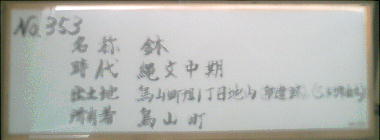 No.353
名称 鉢
時代 縄文中期
出土地 烏山町旭1丁目地内
所有者 烏山町